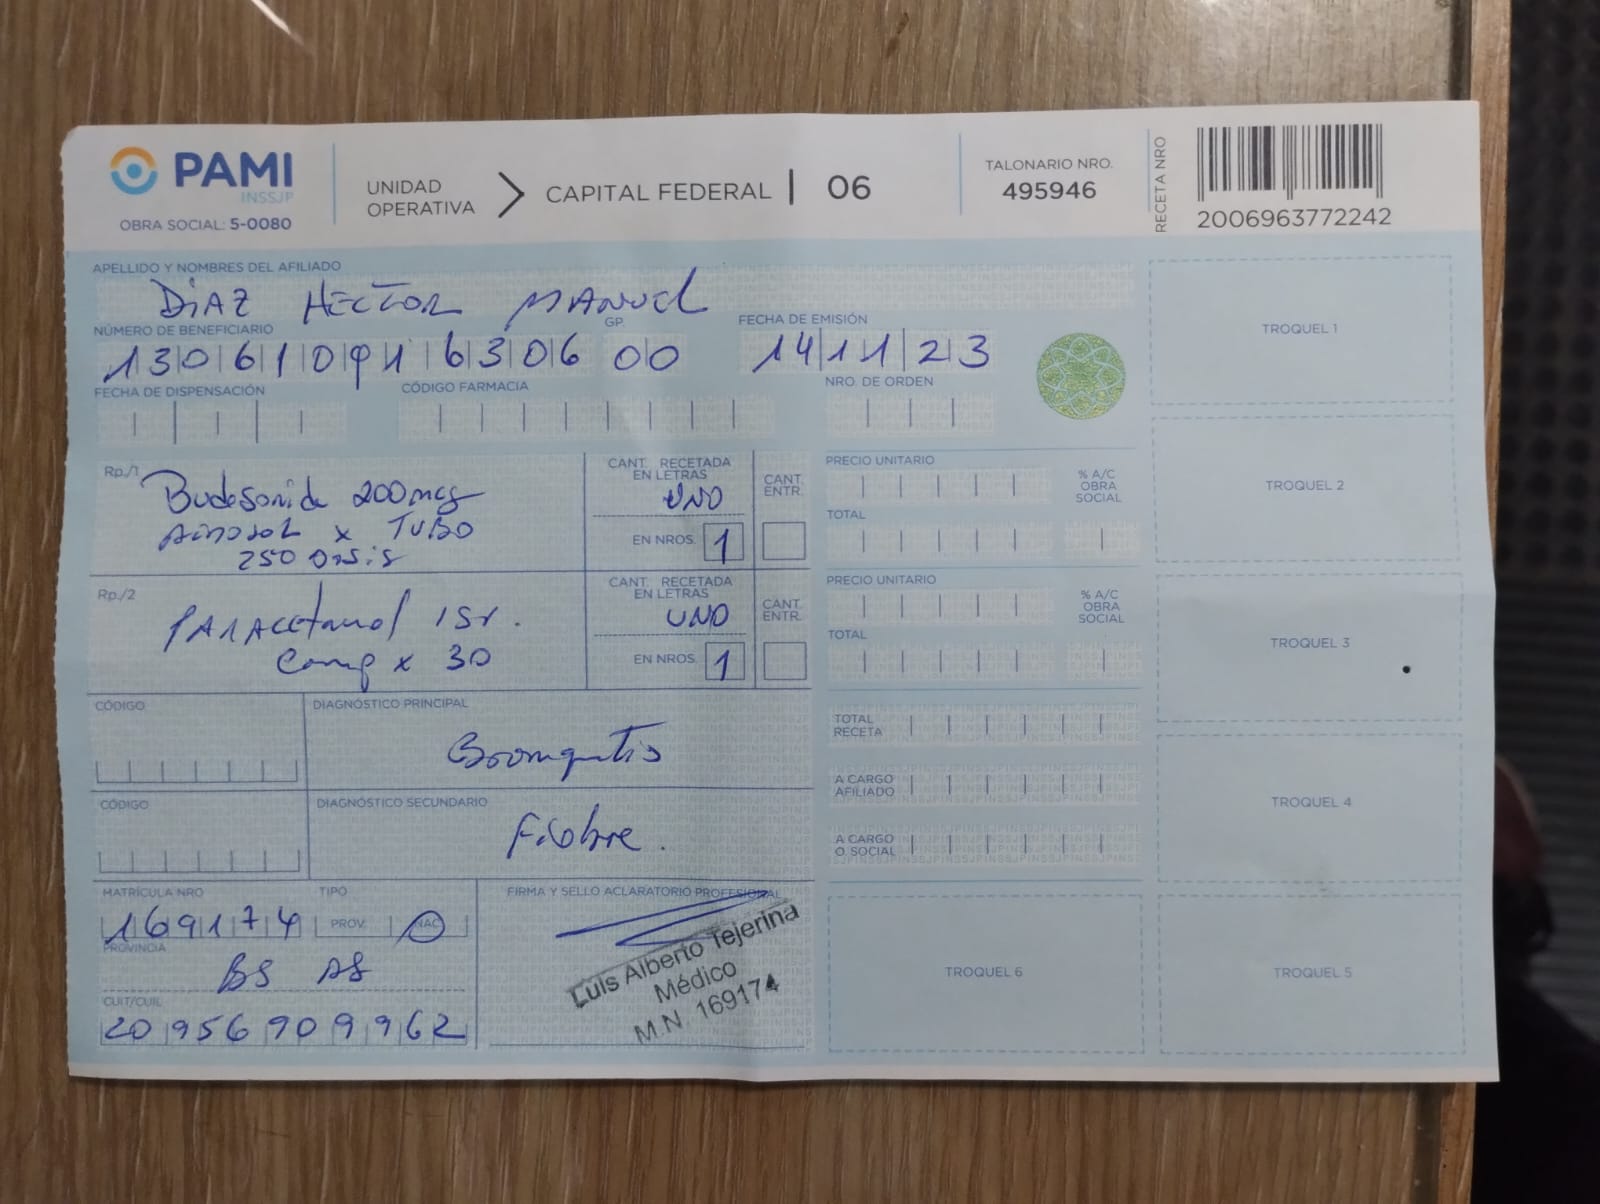 PAMI
INSSJP
OBRA SOCIAL: 5-0080
UNIDAD
OPERATIVA
CAPITAL FEDERAL | 06
TALONARIO NRO.
495946
RECETA NRO
2006963772242
APELLIDO Y NOMBRES DEL AFILIADO
DIAZ HECTOR MANUEL
NÚMERO DE BENEFICIARIO
GP.
FECHA DE EMISIÓN
130610916306 00
14 11 23
FECHA DE DISPENSACIÓN
CÓDIGO FARMACIA
NRO. DE ORDEN
Rp./1
Budesonide 200mcg
Aerosol x TUBO
250 Dosis
CANT. RECETADA
EN LETRAS
UNO
EN NROS. 1
CANT.
ENTR.
PRECIO UNITARIO
% A/C
OBRA
SOCIAL
TOTAL
Rp./2
PARACEtamol 1gr.
Comp x 30
CANT. RECETADA
EN LETRAS
UNO
EN NROS. 1
CANT.
ENTR.
PRECIO UNITARIO
% A/C
OBRA
SOCIAL
TOTAL
CÓDIGO
DIAGNÓSTICO PRINCIPAL
Bronquitis
TOTAL
RECETA
A CARGO
AFILIADO
CÓDIGO
DIAGNÓSTICO SECUNDARIO
Fiebre.
A CARGO
O. SOCIAL
MATRÍCULA NRO
TIPO
169174
PROV.
NAC
PROVINCIA
BS AS
CUIT/CUIL
20956909962
FIRMA Y SELLO ACLARATORIO PROFESIONAL
Luis Alberto Tejerina
Médico
M.N. 169174
TROQUEL 1
TROQUEL 2
TROQUEL 3
TROQUEL 4
TROQUEL 6
TROQUEL 5